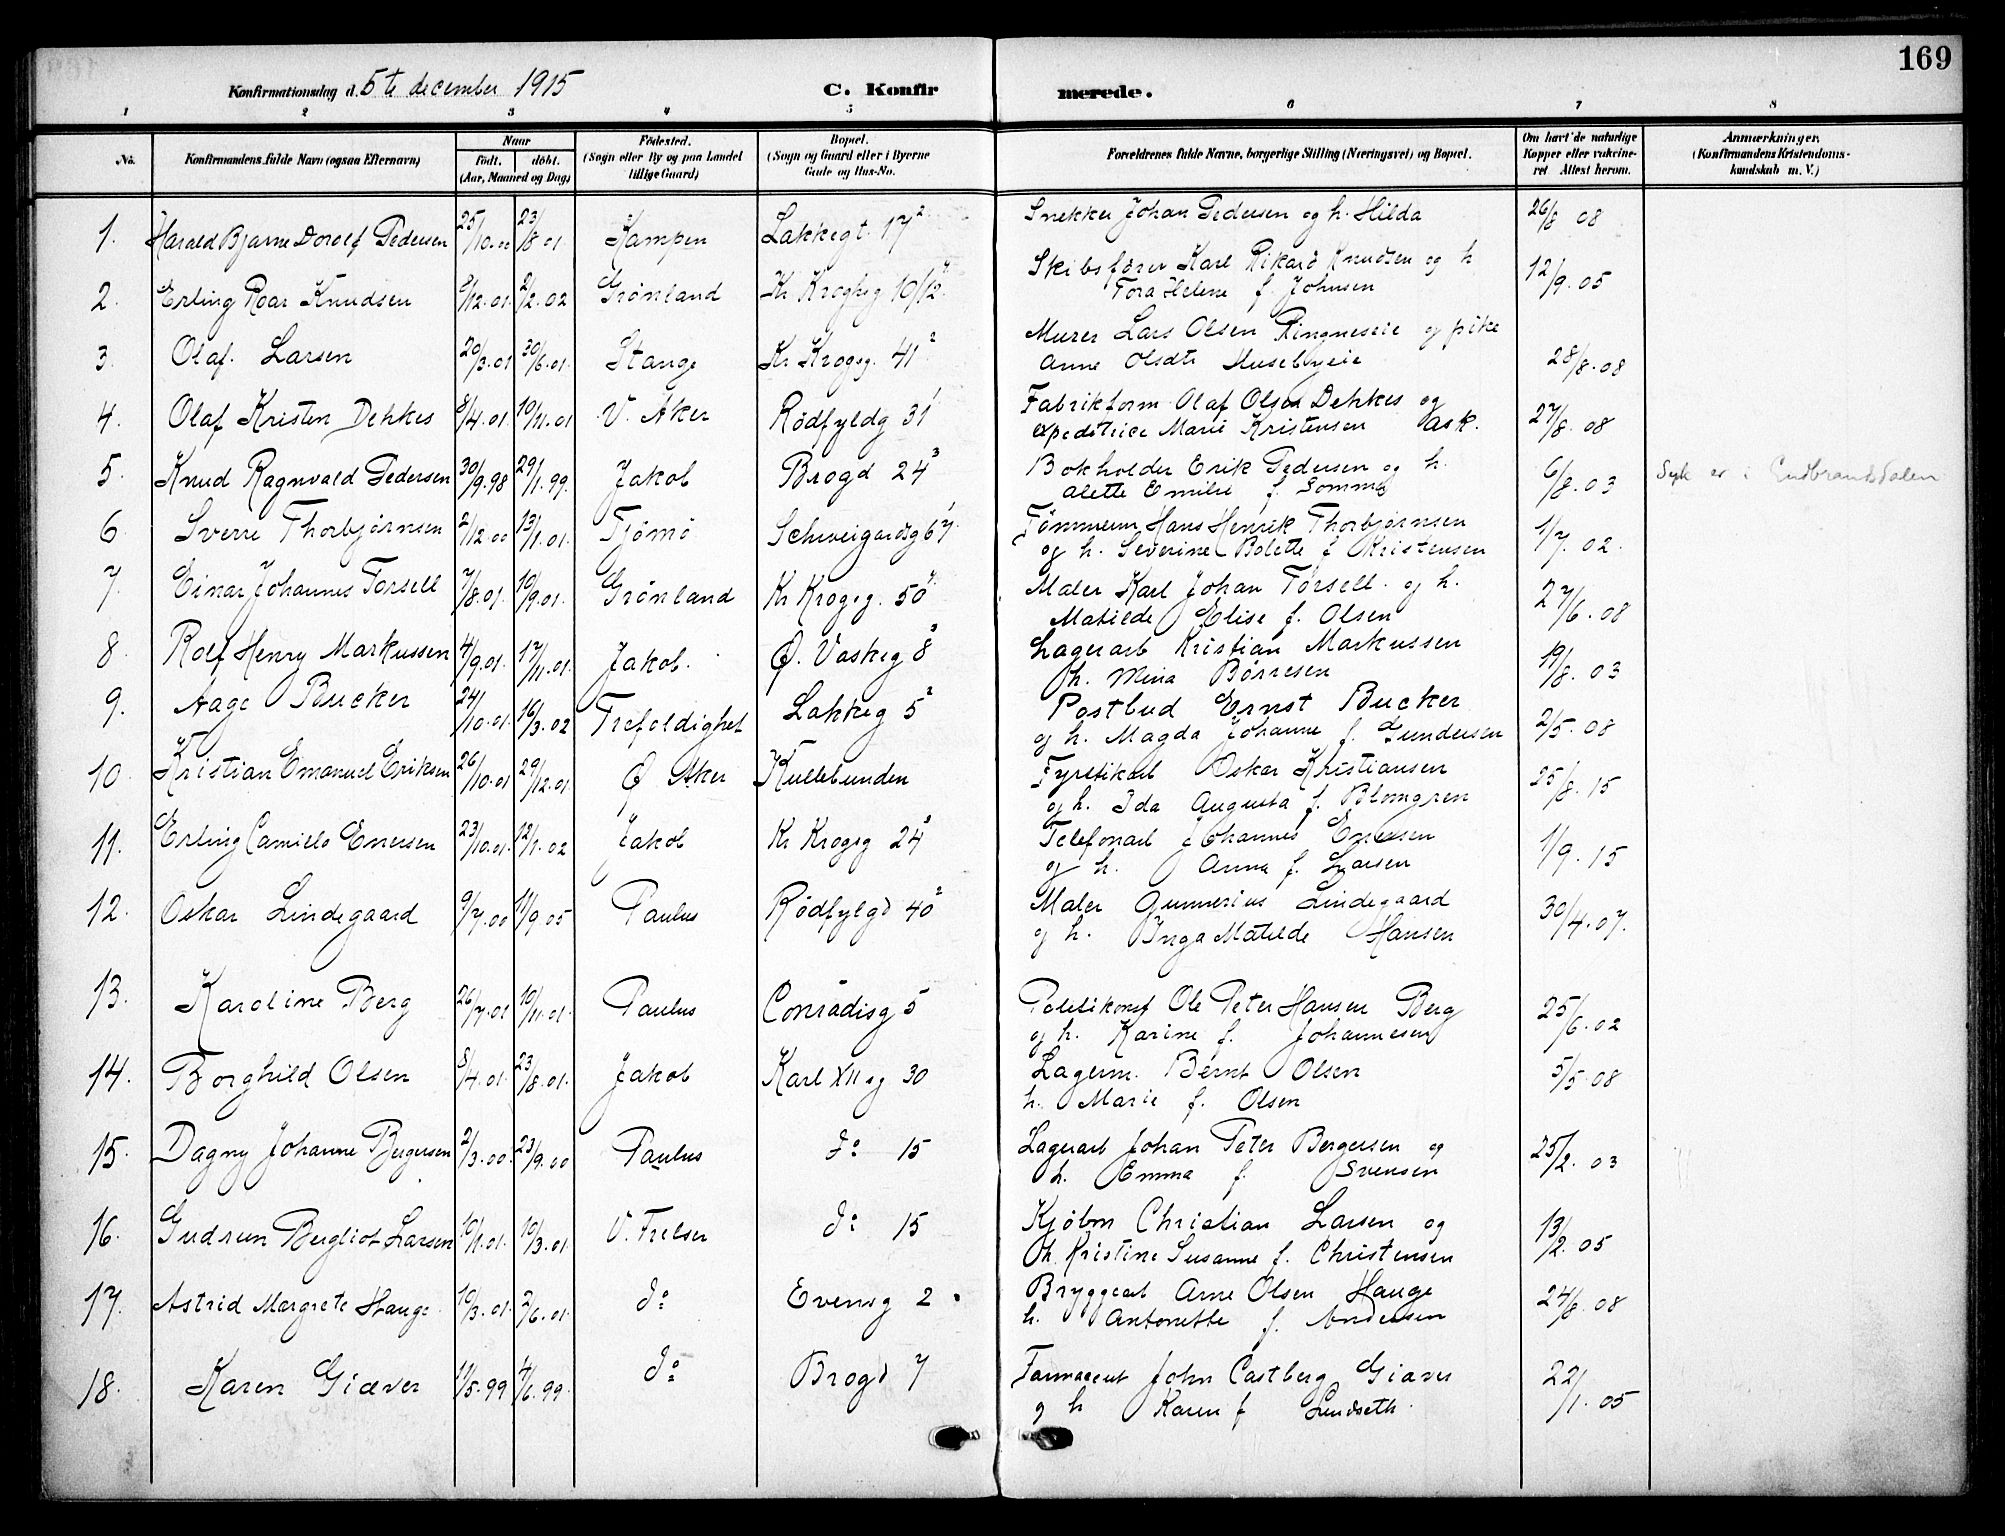 169
Konfirmationsdag d. 5te december 1915 C. Konfirmerede.
1 2 3 4 5 6 7 8
No. Konfirmandens fulde Navn (ogsaa Efternavn) Naar født. døbt. (Aar, Maaned og Dag) Fødested. (Sogn eller By og paa Landet tillige Gaard) Bopæl. (Sogn og Gaard eller i Byerne Gade og Hus-No. Forældrenes fulde Navne, borgerlige Stilling (Næringsvei) og Bopæl. Om havt de naturlige Kopper eller vakcineret Attest herom. Anmærkninger. (Konfirmandens Kristendomskundskab m. V.)
1. Harald Bjarne Dorolf Pedersen 25/10.00 23/8 01. Kampen Lakkegt. 17² Snekker Johan Pedersen og h. Hilda 26/8 08
2. Erling Roar Knudsen /12.01. 2/2.02 Grønland Kr Kroghsg 10/12 Skibsfører Karl Rikard Knudsen og h 12/9.05
Tora Helene f. Johnsen
3. Olaf. Larsen 20/3.01 30/6.01. Stange Kr Krogsg. 41² Murer Lars Olsen Ringneseie og pike
Anne Olsdtr Musebyeie 28/8.08
4. Olaf Kristen Dehkes 8/4.01. 10/11.01 V. Aker Rødfyldg 31¹ Fabrikform Olaf Olsen Dehkes og
expeditrice Marie Kristensen Ask. 27/8.08
5. Knud Ragnvald Pedersen 30/9.98 29/1.99. Jakob Brogd 24³ Bokholder Erik Pedersen og h.
Alette Emilie f. Somme 6/8.03 Syk er i Gudbrandsdalen
6 Sverre Thorbjørnsen 2/12.00 13/1.01. Tjømø Schweigaardsg 67 Tømmerm Hans Henrik Thorbjørnsen
og h. Severine Bolette f Kristensen 1/7.02.
7. Einar Johannes Torsell 7/8.01. 10/9.01. Grønland Kr Krogsg. 50 Maler Karl Johan Torsell. og h.
Matilde Elise f. Olsen 27/6.08
8. Rolf Henry Markussen 4/9.01. 17/11.01. Jakob. Ø. Vaskeg 8³ Lagerarb Kristian Markussen
h. Mina Børresen 19/8.03
9. Aage Bucker 24/10.01. 16/3.02 Trefoldighet Lakkeg 5² Postbud Ernst Bucker
og h. Magda Johanne f. Gundersen 2/5.08
10. Kristian Emanuel Eriksen 26/10.01 29/12.01. Ø Aker Kullebunden Fyrstikarb Oskar Kristiansen
og h. Ida Augusta f. Blomgren 25/8.15
11. Erling Camillo Enersen 23/10.01. 12/1.02 Jakob Kr Krogsg 24³ Telefonarb Johannes Enersen
og h. Anna f. Larsen 1/9.15
12. Oskar Lindegaard 9/7.00 11/9.05 Paulus Rødfylgd 40² Maler Gunnerius Lindegaard
og h. Inga Matilde Hansen 30/4.07.
13. Karoline Berg 26/7.01 10/11.01. Paulus Conradisg 5 Politikonst Ole Peter Hansen Berg
og h. Karine f. Johannesen 25/6.02
14. Borghild Olsen 8/4.01. 23/8.01. Jakob Karl XII sg 30 Lagerm. Bernt Olsen
h. Marie f. Olsen 5/5.08
15. Dagny Johanne Bergersen 2/3.00. 23/9.00 Paulus do 15 Lagerarb Johan Peter Bergersen og
h. Emma f. Svensen 25/2.03
16. Gudrun Bergliot Larsen 10/1.01. 10/3.01. V. Frelser do 15 Kjøbm Christian Larsen og
h. Kristine Susanne f. Christensen 13/2.05
17. Astrid Margrete Hauge. 10/3.01. 2/6.01. do Evensg 2. Bryggearb Arne Olsen Hauge
h. Antonette f. Andersen 24/6.08
18. Karen Giæver 11/5.99 4/6.99. do Brogd 7 Farmaceut John Castberg Giæver
og h Karen f Lundseth 22/1.05